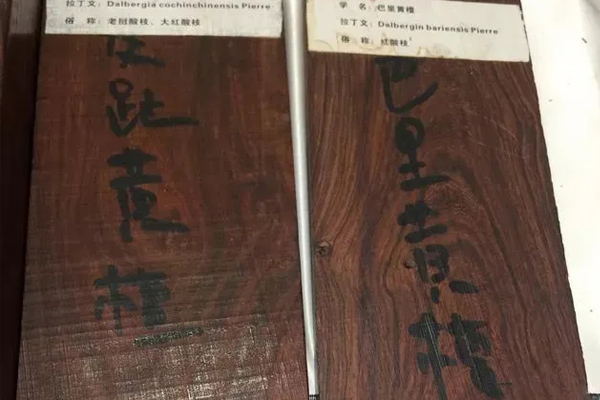 拉丁文：Dalbergia cochinchinensis Pierre
俗　称：老挝酸枝、大红酸枝
交趾黄檀
学　名：巴里黄檀
拉丁文：Dalbergin bariensis Pierre
俗　称：红酸枝
巴里黄檀